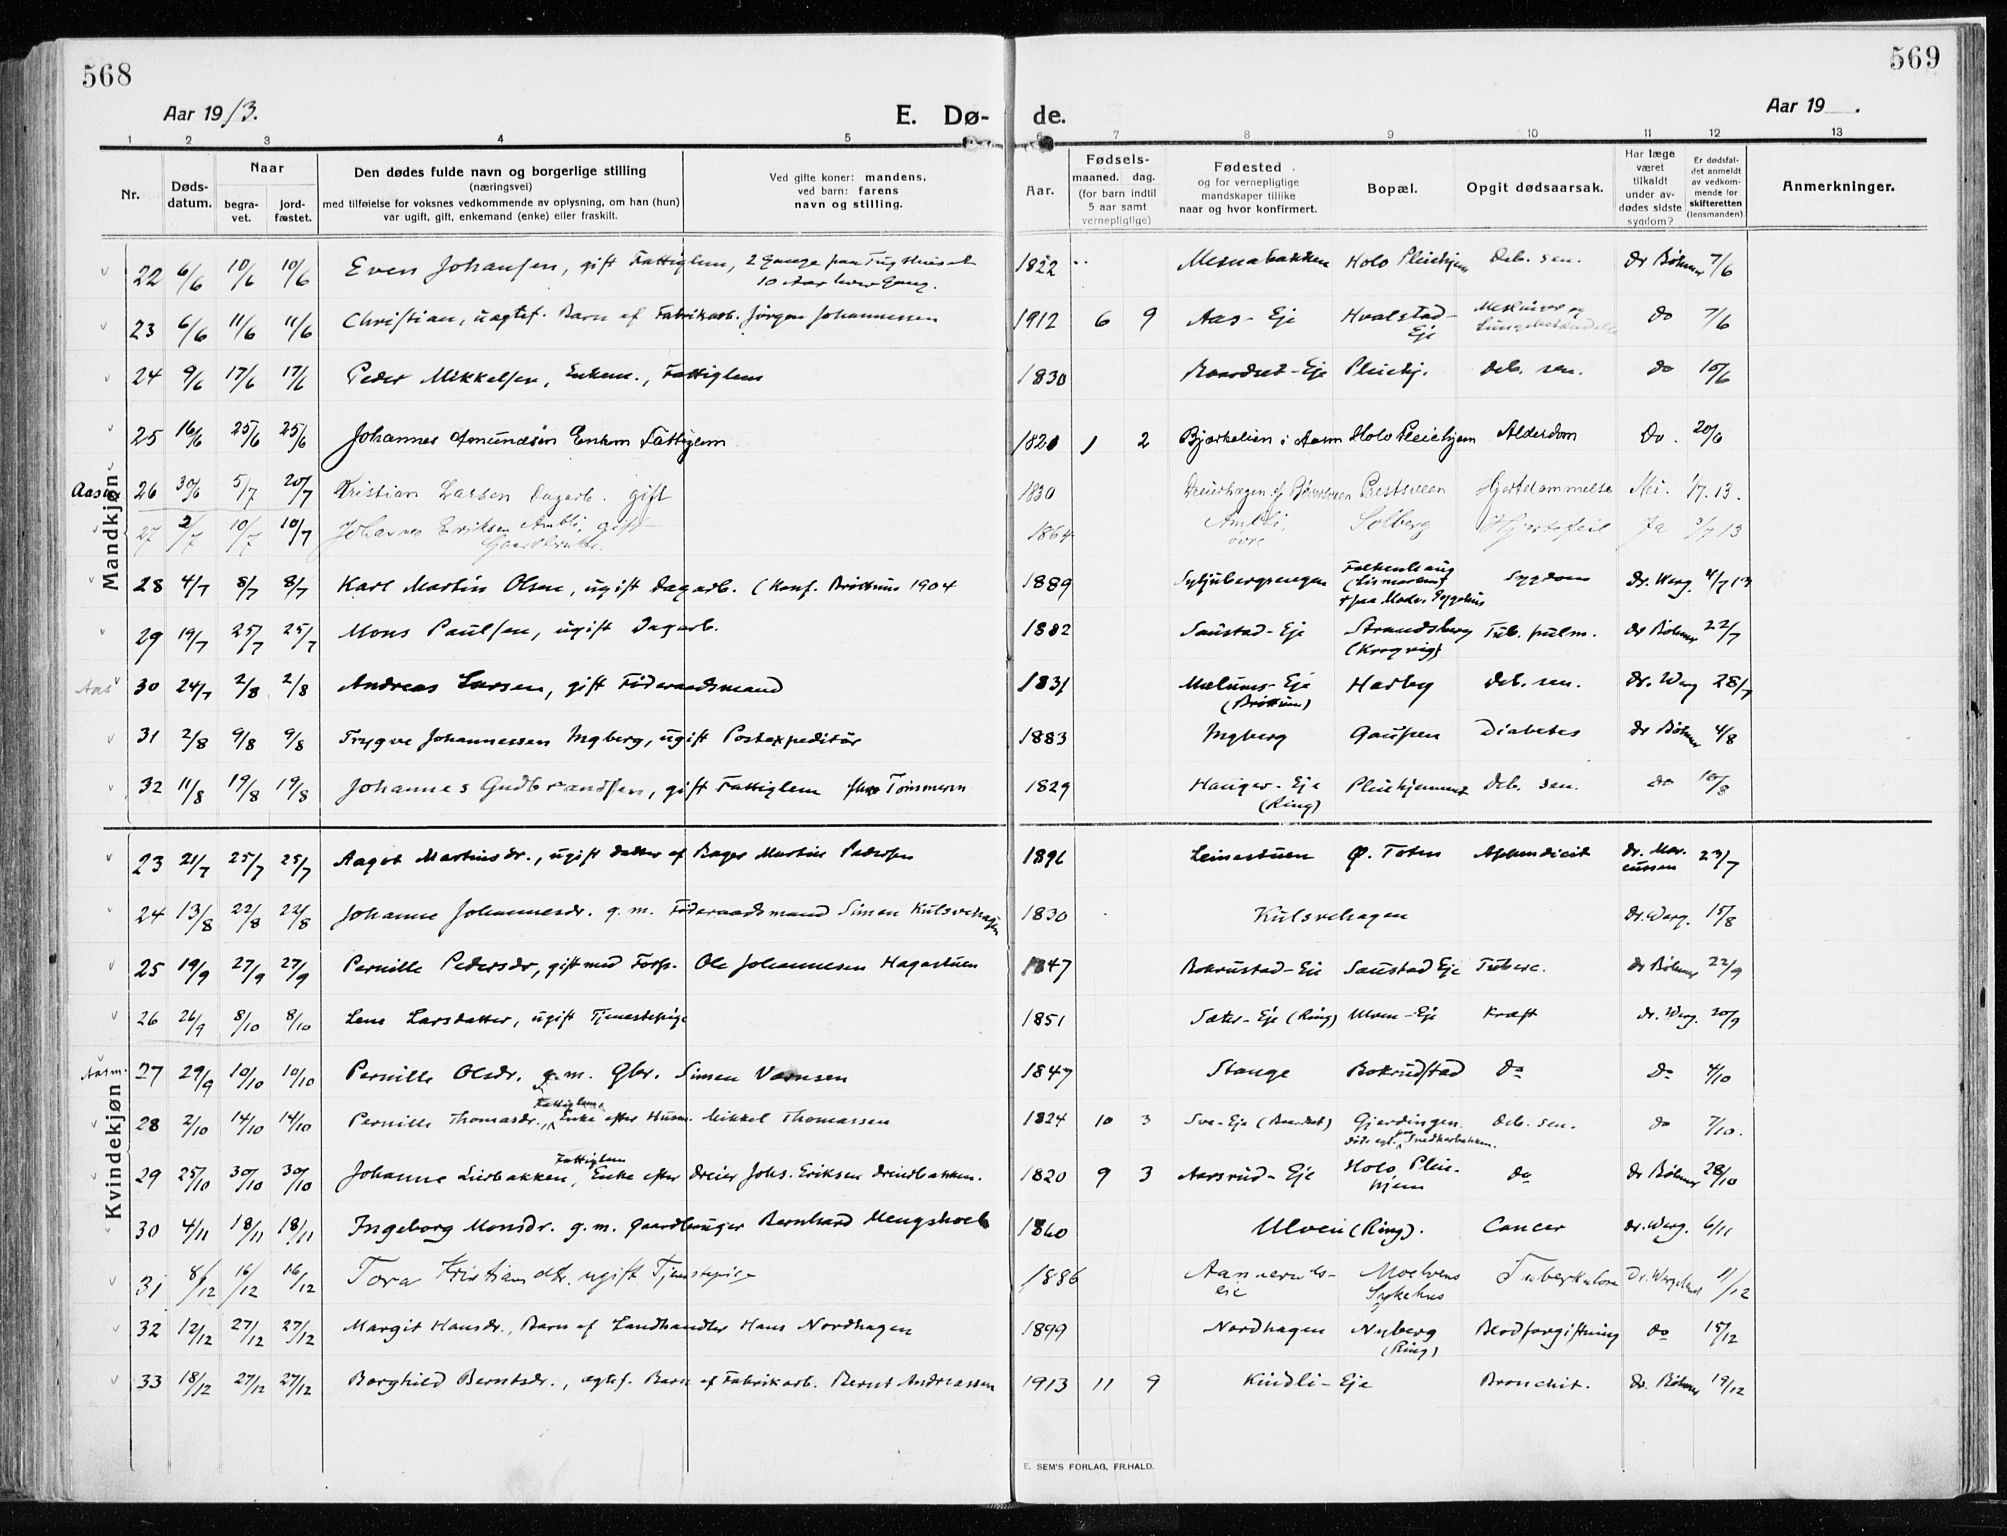 568
569
Aar 1913.
E. Dø-
de.
Aar 19 .
1 2 3 4 5 6 7 8 9 10 11 12 13
Nr.
Døds-
datum.
Naar
begra-
vet.
jord-
fæstet.
Den dødes fulde navn og borgerlige stilling
(næringsvei)
med tilføielse for voksnes vedkommende av oplysning, om han (hun)
var ugift, gift, enkemand (enke) eller fraskilt.
Ved gifte koner: mandens,
ved barn: farens
navn og stilling.
Aar.
Fødsels-
maaned. dag.
(for barn indtil
5 aar samt
vernepligtige)
Fødested
og for vernepligtige
mandskaper tillike
naar og hvor konfirmert.
Bopæl.
Opgit dødsaarsak.
Har læge
været
tilkaldt
under av-
dødes sidste
sygdom?
Er dødsfal-
det anmeldt
av vedkom-
mende for
skifteretten
(lensmanden).
Anmerkninger.
Mandkjøn
22 6/6 10/6 10/6 Even Johansen, gift Fattiglem, 2 Gange paa Tugthuset 1822 Mesnabakken Holo Pleiehjem Deb. sen. Dr Böhmer 7/6
10 Aar hver Gang.
23 6/6 11/6 11/6 Christian, uægtef. Barn af Fabrikarb. Jörgen Johannessen 1912 6 9 Aas-Eje Hvalstad-Eje do 7/6
24 9/6 17/6 17/6 Peder Mikkelsen, Enkem., Fattiglem 1830 Baardset-Eje Pleiehj. Deb. sen. do 10/6
25 16/6 25/6 25/6 Johannes Amundsen Enkem Fattiglem 1820 1 2 Bjørkelien i Aasm Holo Pleiehjem Alderdom Do. 20/6
26 30/6 5/7 20/7 Kristian Larsen Dagarb. gift 1830 Prestsveen Hjertelammelse Nei. 1/7.13.
27 2/7 10/7 10/7 Johannes Eriksen Ambli, gift 1864 Ambli, øvre Solberg Hjertefeil Ja 3/7 13
28 4/7 8/7 8/7 Karl Martin Olsen, ugift Dagarb. (Konf. Bröttum 1904 1889 Falkenhaug Sygdom Dr. Werg. 4/7 13
29 19/7 25/7 25/7 Mons Paulsen, ugift Dagarb. 1882 Saustad-Eje Strandsberg Tub. pulm. Dr Böhmer 22/7
(Krogvig)
Aas 30 24/7 2/8 2/8 Andreas Larsen, gift Föderaadsmand 1831 Mælums-Eje Harby Deb. sen. Dr. Werg 28/7
(Bröttum)
31 2/8 9/8 9/8 Trygve Johannessen Ingberg, ugift Postexpeditör 1883 Ingberg Gaupen Diabetes Dr Böhmer 4/8
32 11/8 19/8 19/8 Johannes Gudbrandsen, gift Fattiglem Tömmerm 1829 Hauger-Eje Pleiehjemmet Deb. sen. do 10/8
(Ring)
Kvindekjøn
23 21/7 25/7 25/7 Aagot Martinsdr., ugift Datter af Bager Martin Pedersen 1896 Leinestuen Ø. Toten Appendicit Dr. Mar-cussen 23/7
24 13/8 22/8 22/8 Johanne Johannesdr. g. m. Föderaadsmand Simen Kulsvehagen 1830 Kulsvehagen Dr. Werg. 15/8
25 19/9 27/9 27/9 Pernille Pedersdr, gift med Forp. Ole Johannesen Hagastuen 1847 Bokrustad-Eie Saustad Eje Tuberc. Dr Böhmer 22/9
26 26/9 8/10 8/10 Lene Larsdatter, ugift Tjenestepige 1851 Sæter-Eje (Ring) Ulven-Eje Kræft Dr. Werg. 20/9
Aasm. 27 29/9 10/10 10/10 Pernille Olsdr. g. m. Gbr. Simen 1847 Stange Bokrudstad Do Do 4/10
28 2/10 14/10 14/10 Pernille Thomasdr., Fattiglem Enke efter Husm. Mikkel Thomassen 1824 10 3 Sve-Eje (Baardset) Gjerdingen. Deb. sen. do 7/10.
29 25/10 30/10 30/10 Johanne Lierbakken, Fattiglem Enke efter Dreier Johs. Eriksen 1820 9 3 Aarsrud-Eje Holo Pleie-hjem do Dr Böhmer 28/10
30 4/11 18/11 18/11 Ingeborg Monsdr. g. m. Gaardbruger Bernhard Mengshoel 1860 Ulven (Ring). Cancer Dr. Werg. 6/11
31 8/12 16/12 16/12 Tora Kristiansdtr. ugift Tjenestepige 1886 Aannerud-eie Moelvens Sykehus Tuberkulose Dr. Wergeland 11/12
32 12/12 27/12 27/12 Margit Hansdr., Barn af Landhandler Hans Nordhagen 1899 Nordhagen Nyberg Blodforgiftning do 15/12
(Ring)
33 18/12 27/12 27/12 Borghild Berntsdr., ægtef. Barn af Fabrikarb. Bernt Andreassen 1913 11 9 Kindli-Eje Bronchit. Dr. Böhmer 19/12
E. SEM'S FORLAG, FR.HALD.